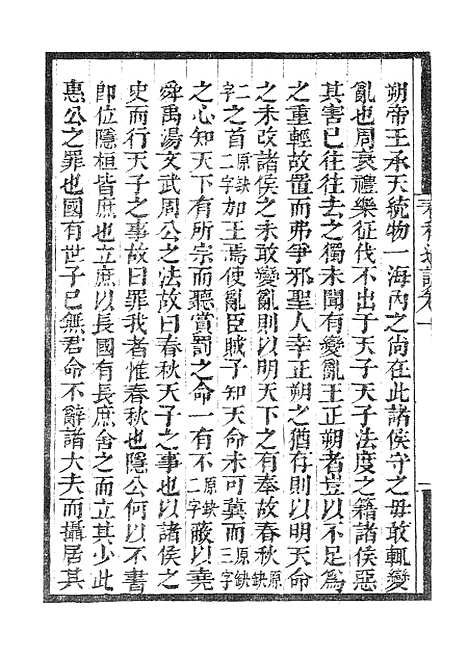 朔帝王承天統物一海內之尚在此諸侯守之毋敢輒變
亂也周衰禮樂征伐不出于天子天子法度之籍諸侯惡
其害已往往去之獨未聞有變亂王正朔者豈以不足爲
之重輕故置而弗爭邪聖人幸正朔之猶存則以明天命
之未改諸侯之未敢變亂則以明天下之有奉故春秋原缺
二字之首原缺二字加王焉使亂臣賊子知天命未可冀而原缺三字
之心知天下有所宗而聽賞罰之命一有不原缺二字敵以堯
舜禹湯文武周公之法故曰春秋天子之事也以諸侯之
史而行天子之事故曰罪我者惟春秋也隱公何以不書
卽位隱桓皆庶也立庶以長國有長庶舍之而立其少此
惠公之罪也國有世子已無君命不辭諸大夫而攝居其
春秋